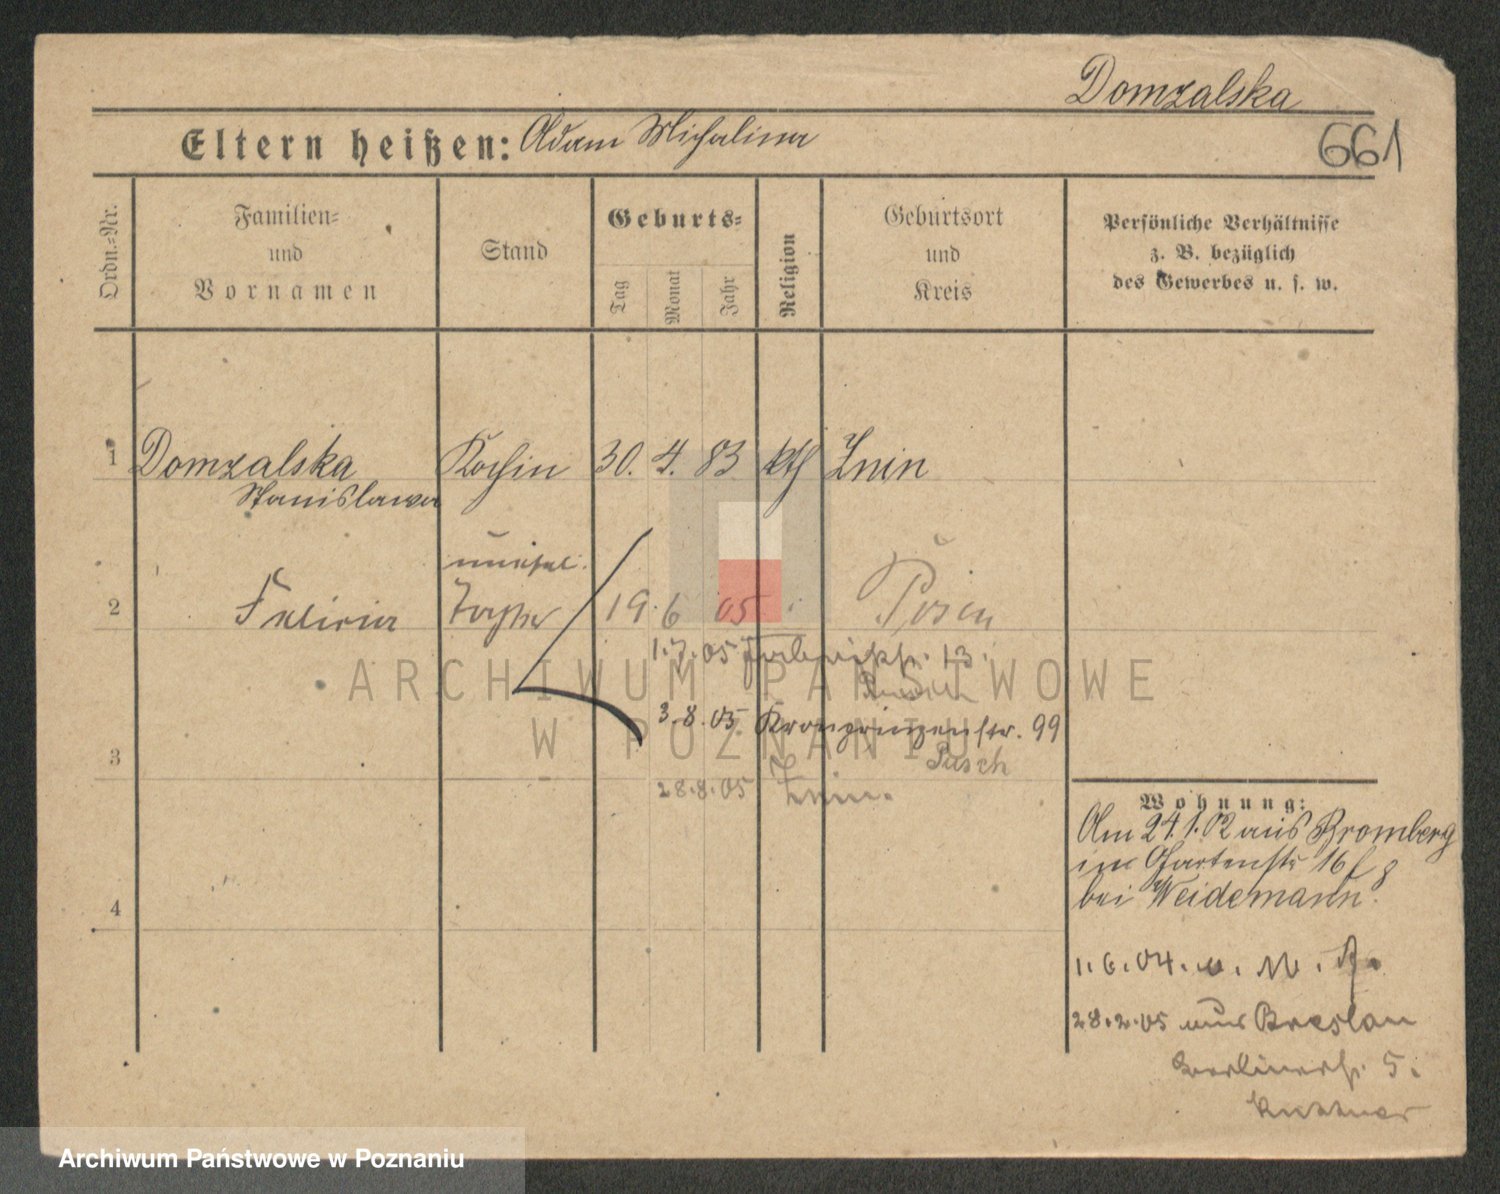 Domzalska
Eltern heißen: Adam Michalina
661
Ordn.-Nr.
Familien-
und
Vornamen
Stand
Geburts-
Tag
Monat
Jahr
Religion
Geburtsort
und
Kreis
Persönliche Verhältnisse
z. B. bezüglich
des Gewerbes u. s. w.
1 Domzalska Köchin 30. 4. 83 kth Znin
Stanislawa
unehel.
2 Felicia Tochter 19. 6 05. Posen
1.7.05 13.
3.8.05 Kronprinzenstr. 99
3
28.8.05 Znin.
4
Wohnung:
Am 24.1.02 aus Bromberg
in Gartenstr 16
bei Weidemann.
1.6.04. u. M.
28.2.05 aus Breslau
Berlinerstr. 5.
ARCHIWUM PAŃSTWOWE
W POZNANIU
Archiwum Państwowe w Poznaniu